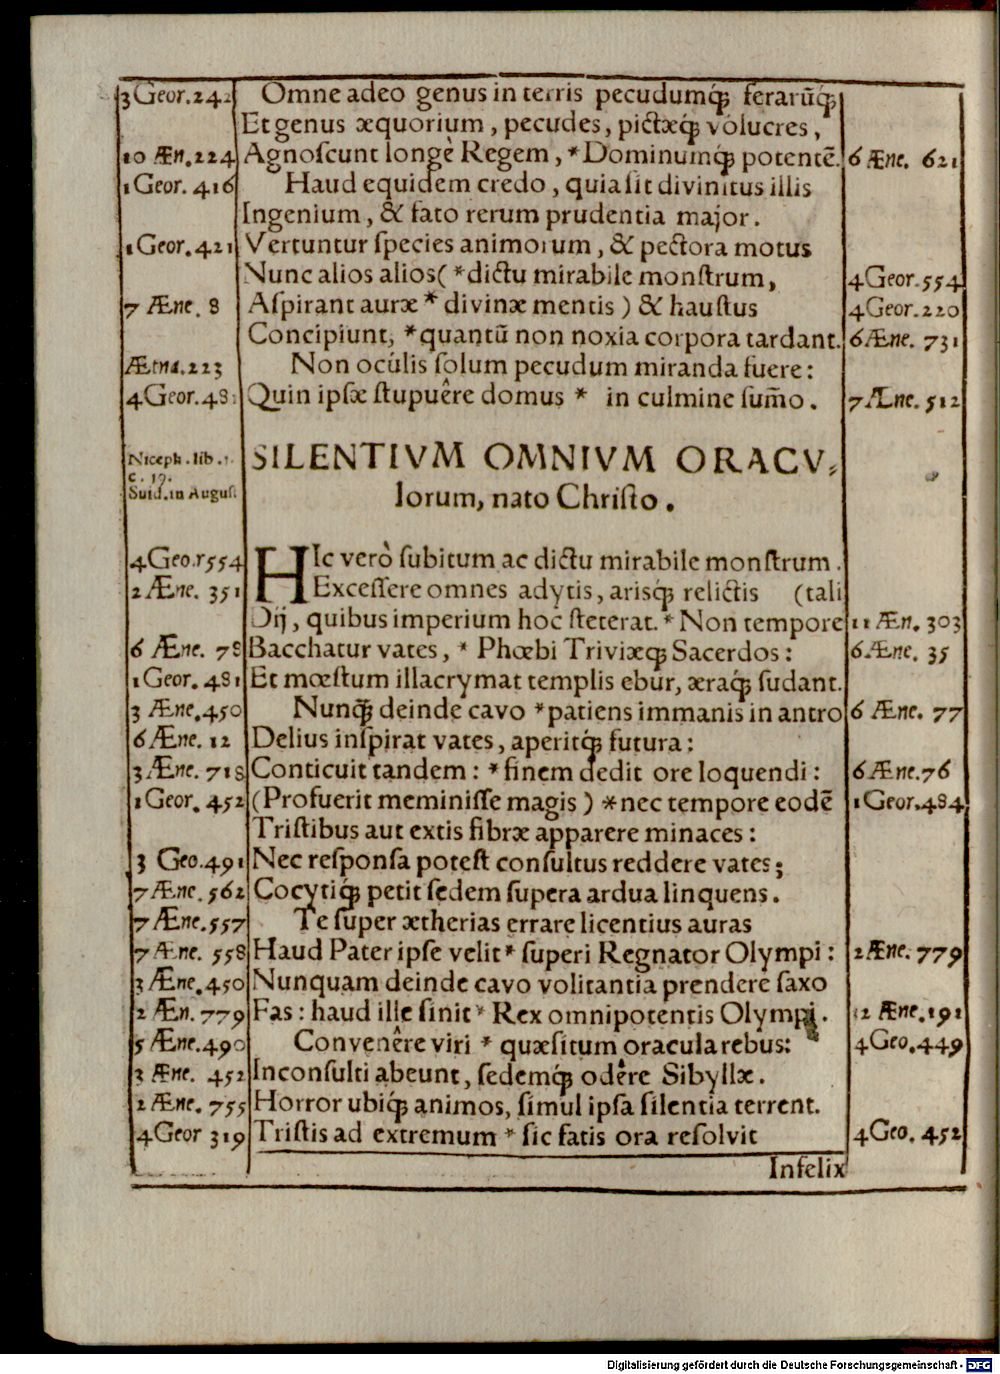 3 Geor. 242 Omne adeo genus in terris pecudumq́ꝫ ferarũq́ꝫ
Et genus æquorium, pecudes, pictæq́ꝫ volucres,
10 Æn. 224 Agnoſcunt longè Regem, * Dominumq́ꝫ potentẽ. 6 Æne. 621
1 Geor. 416 Haud equidem credo, quia ſit divinitus illis
Ingenium, & fato rerum prudentia major.
1 Geor. 421 Vertuntur ſpecies animorum, & pectora motus
Nunc alios alios (* dictu mirabile monſtrum, 4 Geor. 554
7 Æne. 8 Aſpirant auræ * divinæ mentis) & hauſtus 4 Geor. 220
Concipiunt, * quantũ non noxia corpora tardant. 6 Æne. 731
Ætna. 223 Non oculis ſolum pecudum miranda fuere:
4 Geor. 481 Quin ipſæ ſtupuêre domus * in culmine ſum̃o. 7 Æne. 512
Niceph. lib. 1. SILENTIVM OMNIVM ORACV⸗
c. 17.
Suid. in Auguſt. lorum, nato Chriſto.
4 Geo.r 554 HIc verò ſubitum ac dictu mirabile monſtrum.
2 Æne. 351 Exceſſere omnes adytis, arisq́ꝫ relictis (tali
Dij, quibus imperium hoc ſteterat. * Non tempore 11 Æn. 303
6 Æne. 78 Bacchatur vates, * Phœbi Triviæq́ꝫ Sacerdos: 6 Æne. 35
1 Geor. 481 Et mœſtum illacrymat templis ebur, æraq́ꝫ ſudant.
3 Æne. 450 Nunq́ꝫ deinde cavo * patiens immanis in antro 6 Æne. 77
6 Æne. 12 Delius inſpirat vates, aperitq́ꝫ futura:
3 Æne. 718 Conticuit tandem: * finem dedit ore loquendi: 6 Æne. 76
1 Geor. 452 (Profuerit meminiſſe magis) * nec tempore eodẽ 1 Geor. 484
Triſtibus aut extis fibræ apparere minaces:
3 Geo. 491 Nec reſponſa poteſt conſultus reddere vates;
7 Æne. 562 Cocytiq́ꝫ petit ſedem ſupera ardua linquens.
7 Æne. 557 Te ſuper ætherias errare licentius auras
7 Æne. 558 Haud Pater ipſe velit * ſuperi Regnator Olympi: 2 Æne. 779
3 Æne. 450 Nunquam deinde cavo volitantia prendere ſaxo
2 Æn. 779 Fas: haud ille ſinit * Rex omnipotentis Olympi. 12 Æne. 191
5 Æne. 490 Convenêre viri * quæſitum oracula rebus: 4 Geo. 449
3 Æne. 452 Inconſulti abeunt, ſedemq́ꝫ odêre Sibyllæ.
2 Æne. 755 Horror ubiq́ꝫ animos, ſimul ipſa ſilentia terrent.
4 Geor 319 Triſtis ad extremum * ſic fatis ora reſolvit 4 Geo. 452
Infelix
Digitalisierung gefördert durch die Deutsche Forschungsgemeinschaft - DFG